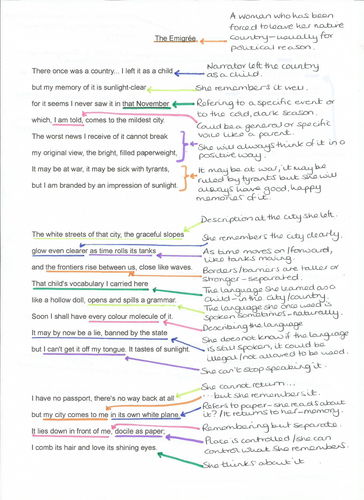 The Emigrée
A woman who has been
forced to leave her native
country - usually for
political reason.
There once was a country... I left it as a child
Narrator left the country
as a child.
but my memory of it is sunlight-clear
She remembers it well.
for it seems I never saw it in that November
Refering to a specific event or
to the cold, dark season.
which, I am told, comes to the mildest city.
Could be a general or specific
voice like a parent.
The worst news I receive of it cannot break
my original view, the bright, filled paperweight,
She will always think of it in a
positive way.
It may be at war, it may be sick with tyrants,
but I am branded by an impression of sunlight.
It maybe at war, it may be
ruled by tyrants but she will
always have good, happy
memories of it.
Description of the city she left.
The white streets of that city, the graceful slopes
She remembers the city clearly.
glow even clearer as time rolls its tanks
As time moves on/forward,
like tanks moving.
and the frontiers rise between us, close like waves.
Borders/barriers are taller or
stronger - separated.
That child's vocabulary I carried here
The language she learned as a
child - in the city/country.
like a hollow doll, opens and spills a grammar.
The language she once used is
spoken sometimes - naturally.
Soon I shall have every colour molecule of it.
Describing the language
It may by now be a lie, banned by the state
She does not know if the language
is still spoken, it could be
illegal/not allowed to be used.
but I can't get it off my tongue. It tastes of sunlight.
She can't stop speaking it.
I have no passport, there's no way back at all
She cannot return...
...but she remembers it.
but my city comes to me in its own white plane
Refers to paper - she reads about
it? / It returns to her - memory.
It lies down in front of me, docile as paper;
Remembering but separate.
Place is controlled/she can
control what she remembers.
I comb its hair and love its shining eyes.
She thinks about it